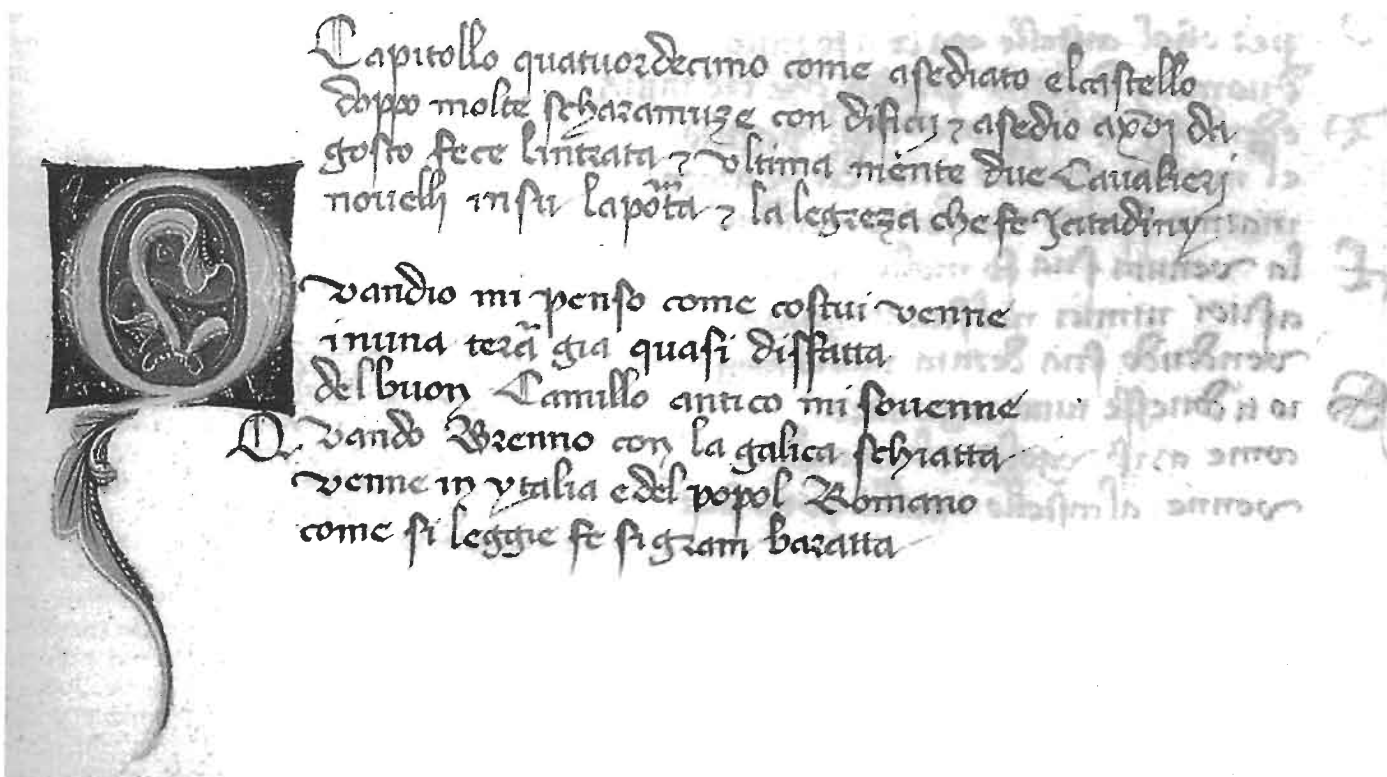 Capitollo quatuordecimo come asediato elcastello
doppo molte scharamuze con dificij ⁊ asedio da
gosto fece lintrata ⁊ vltima mente due Cavalieri
novelli insu la ⁊ la legreza che fe
Qvandio mi penso come costui venne
inuna tera gia quasi disfatta
del buon Camillo antico mi sovenne
Qvando Brenno con la galica schiatta
venne in ytalia e del popol Romano
come si leggie fe si gram baratta